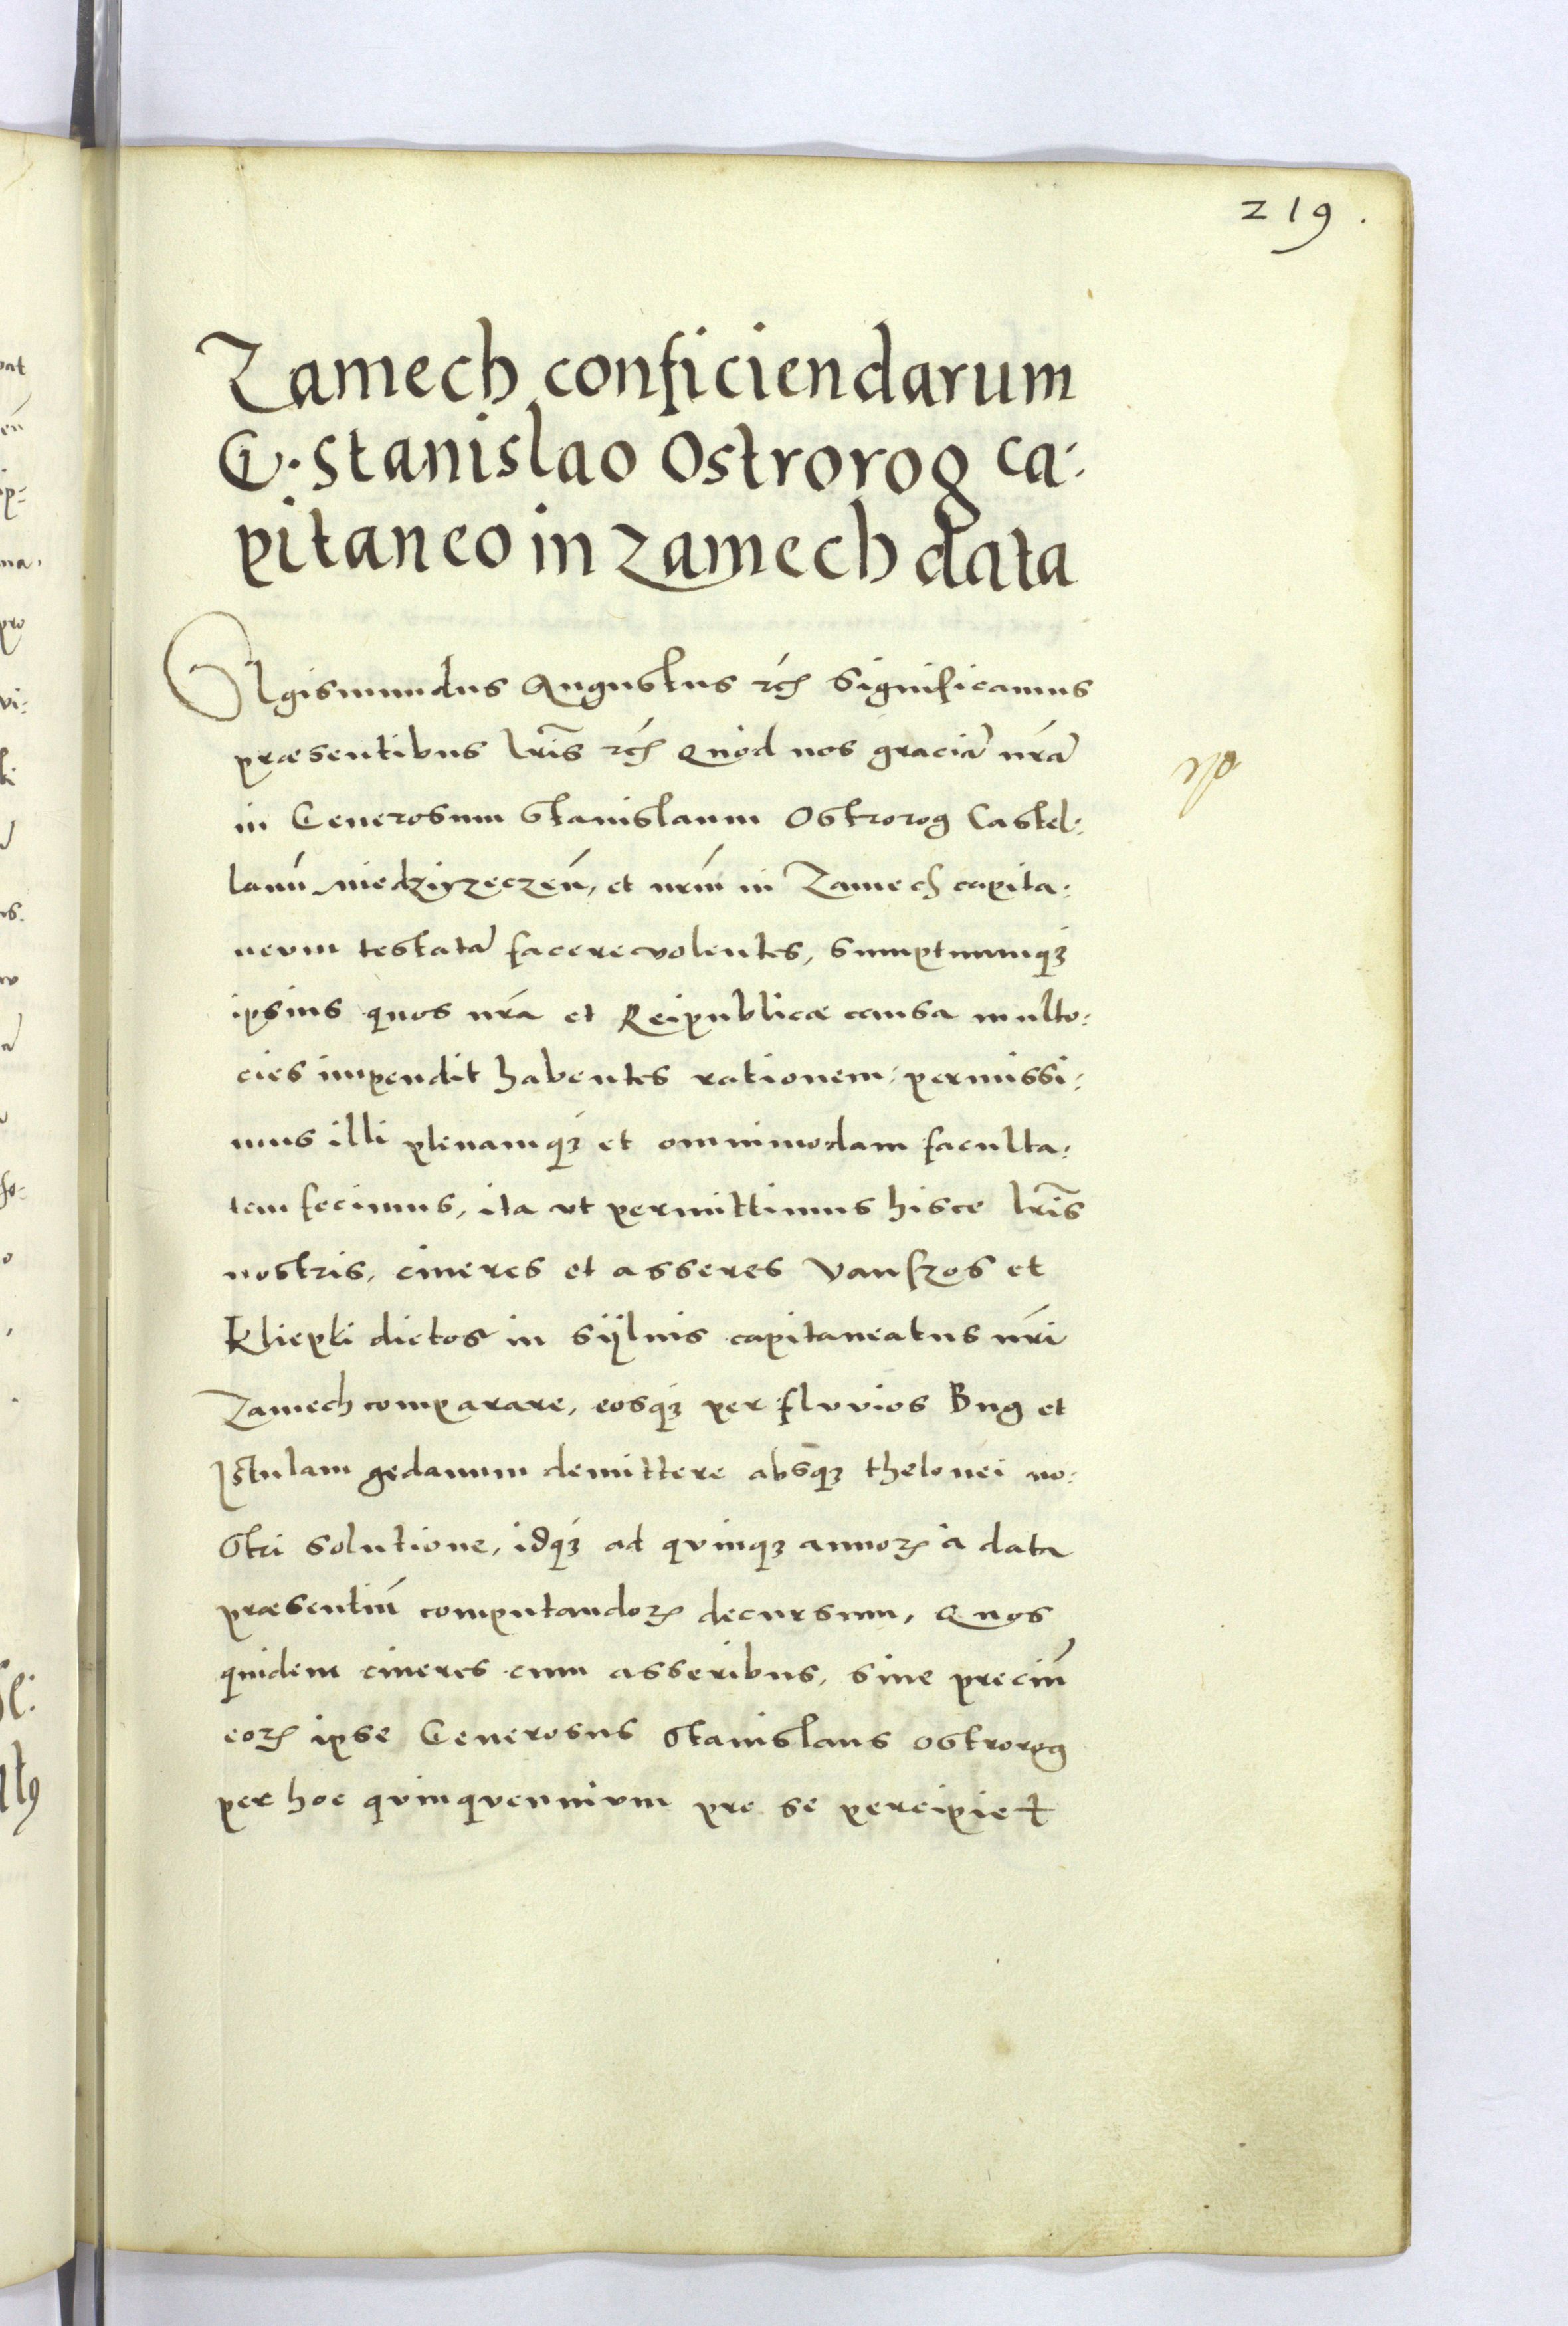 219.
Zamech conficiendarum
G. Stanislao Ostrorog ca-
pitaneo in Zamech data
Sigismundus Augustus etc̃ Significamus
præsentibus lr̃is etc̃ Quod nos graciã nr̃ã
in Generosum Stanislaum Ostrorog Castel-
lanũ Miedzÿrzeczeñ, et nr̃m in Zamech capita-
neum testatã facere volentes, sumptuumqȝ
ipsius quos nr̃a et Reipublicæ causa multo-
cies impendit habentes rationem: permissi-
mus illi plenamqȝ et omnimodam faculta-
tem fecimus, ita ut permittimus hisce lr̃is
nostris, cineres et asseres vanszos et
Kliepki dictos in sÿlvis capitaneatus nr̃i
Zamech comparare, eosqȝ per fluvios Bug et
Istulam gedanum demittere absqȝ thelonei no-
stri solutione, idqȝ ad quinqȝ annoꝝ à data
præsentiũ computandoꝝ decursum, Quos
quidem cineres cum asseribus, sive preciũ
eoꝝ ipse Generosus Stanislaus Ostrorog
per hoc quinquennium pro se percipiet